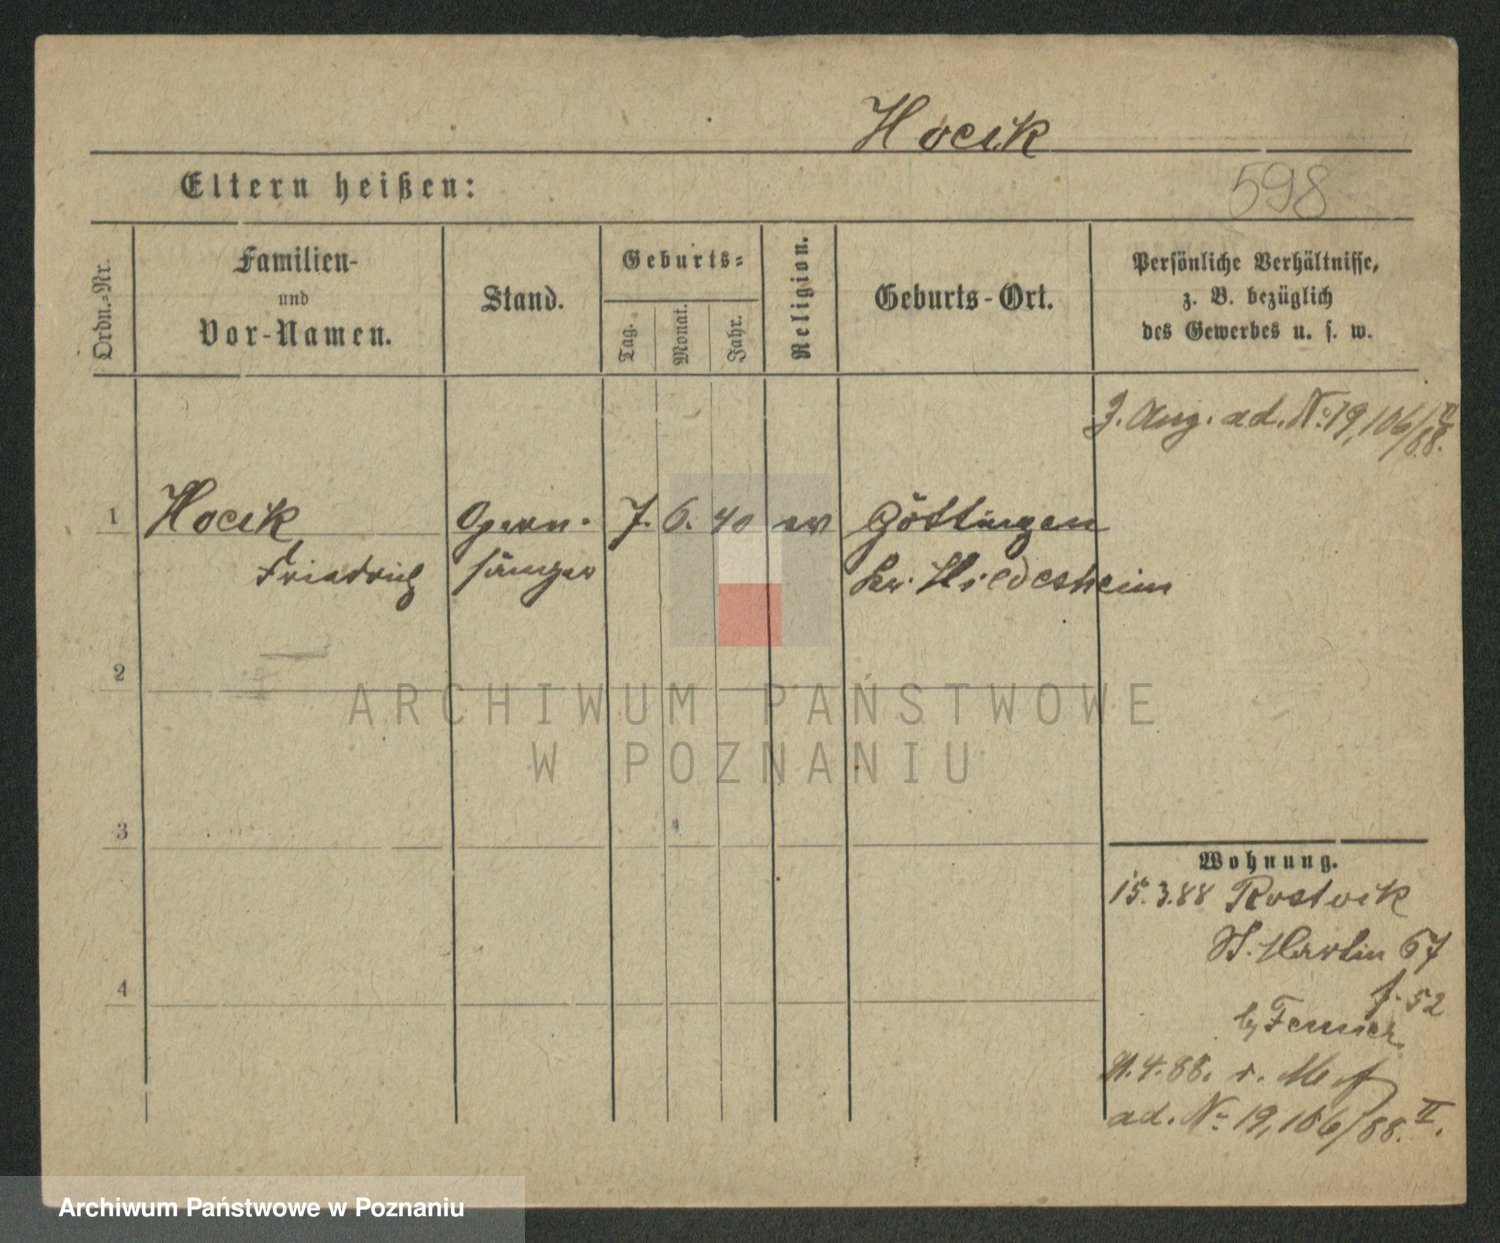 Hocik
Eltern heißen:
598
Ordn.-Nr.
Familien-
und
Vor-Namen.
Stand.
Geburts-
Tag.
Monat.
Jahr.
Religion.
Geburts-Ort.
Persönliche Verhältnisse,
z. B. bezüglich
des Gewerbes u. s. w.
Z. Ang. ad. No. 19,106/88. II
1 Hocik Opern- 7. 6. 40 ev Göttingen
Friedrich sänger Kr. Hildesheim
2
3
4
Wohnung.
15.3.88 Rostock
St. Martin 67
52
by Fenner
4.88. v.
ad. No 19,106/88. II.
ARCHIWUM PAŃSTWOWE
W POZNANIU
Archiwum Państwowe w Poznaniu